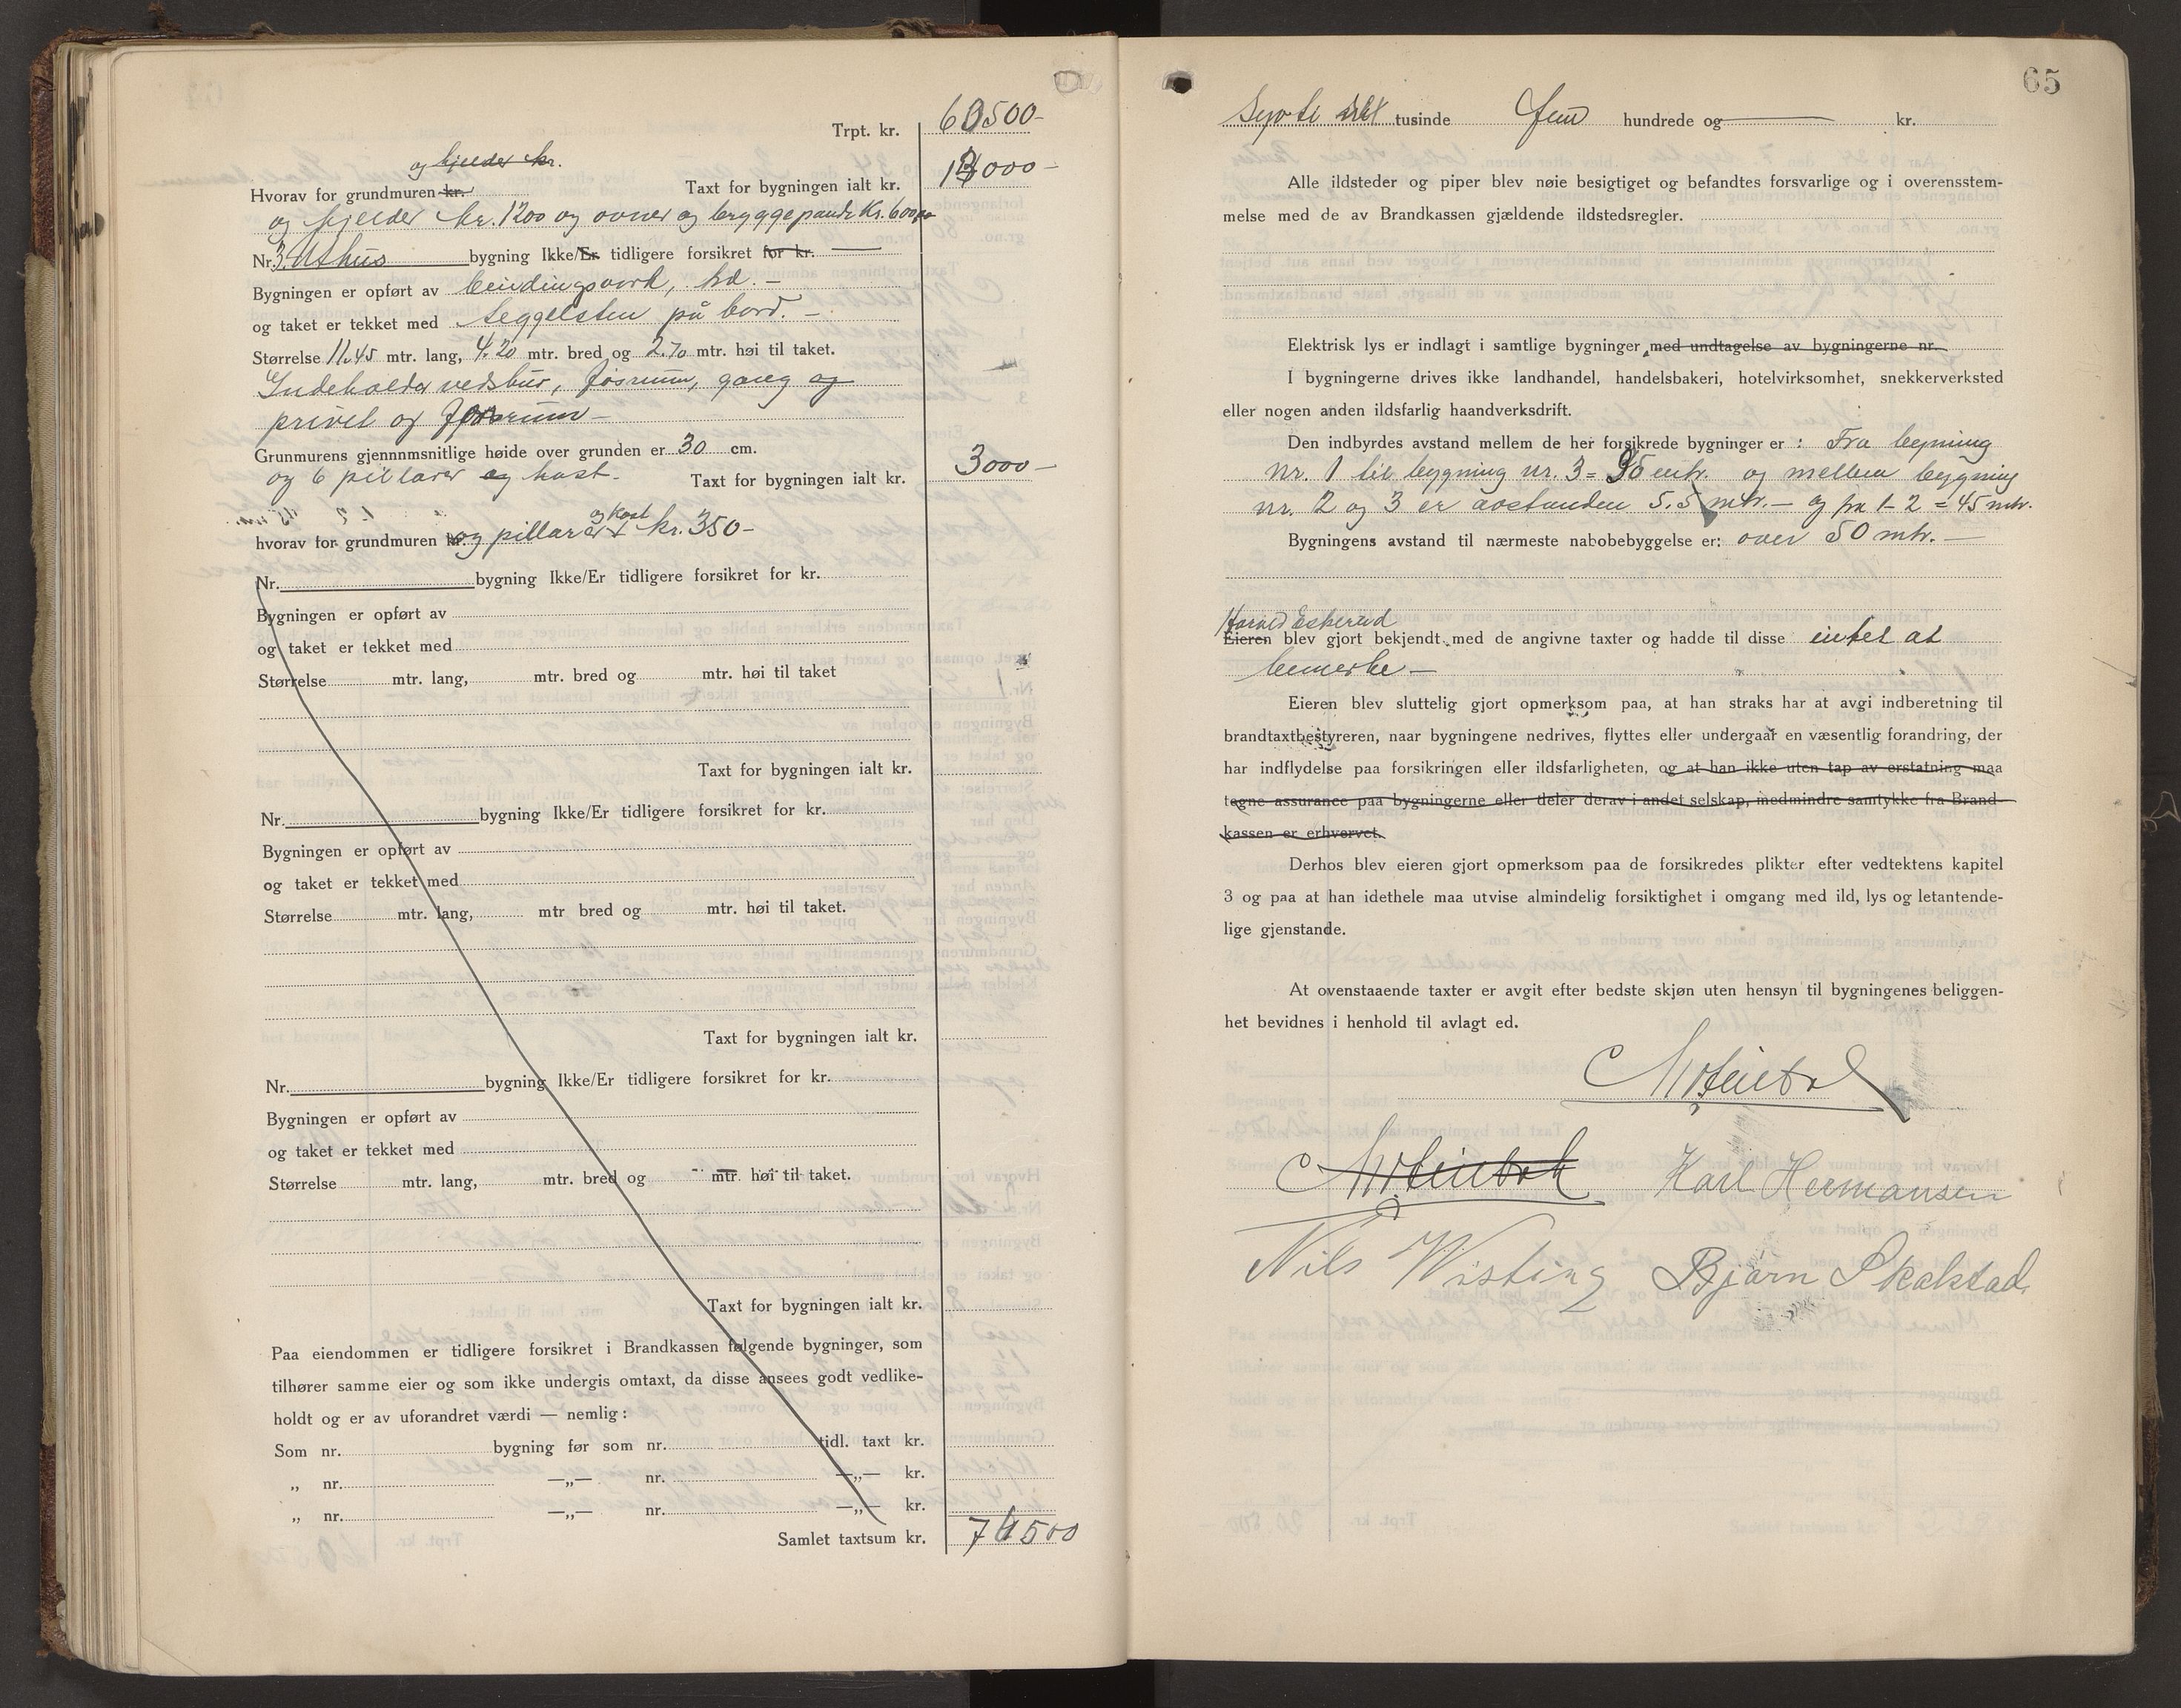 Trpt. kr. 60500-
og kjelder kr.
Hvorav for grundmuren kr. Taxt for bygningen ialt kr. 000-
og kjelder kr. 1200 og ovner og bryggepande kr. 600
Nr. 3. Uthus bygning Ikke/Er tidligere forsikret for kr. —
Bygningen er opført av bindingsverk,
og taket er tekket med teggelsten på bord. -
Størrelse 11.45 mtr. lang, 4.20 mtr. bred og 2.70 mtr. høi til taket.
Indeholder vedskur, fosrum, gang og
privet og -
Grunmurens gjennnmsnitlige høide over grunden er 30 cm.
og 6 pillarer og kast. Taxt for bygningen ialt kr. 3000-
og kast
hvorav for grundmuren kr. og pillarer kr. 350-
Nr. bygning Ikke/Er tidligere forsikret for kr.
Bygningen er opført av
og taket er tekket med
Størrelse mtr. lang, mtr. bred og mtr. høi til taket
Taxt for bygningen ialt kr.
Nr. bygning Ikke/Er tidligere forsikret for kr.
Bygningen er opført av
og taket er tekket med
Størrelse mtr. lang, mtr bred og mtr. høi til taket.
Taxt for bygningen ialt kr.
Nr. bygning Ikke/Er tidligere forsikret for kr.
Bygningen er opført av
og taket er tekket med
Størrelse mtr. lang, mtr. bred og mtr. høi til taket.
Taxt for bygningen ialt kr.
Paa eiendommen er tidligere forsikret i Brandkassen følgende bygninger, som
tilhører samme eier og som ikke undergis omtaxt, da disse ansees godt vedlike-
holdt og er av uforandret værdi — nemlig:
Som nr. bygning før som nr. tidl. taxt kr.
„ nr. —„— nr. —„— kr.
„ nr. —„— nr. —„— kr.
Samlet taxtsum kr. 500
65
Sytti tusinde fem hundrede og — kr.
Alle ildsteder og piper blev nøie besigtiget og befandtes forsvarlige og i overensstem-
melse med de av Brandkassen gjældende ildstedsregler.
Elektrisk lys er indlagt i samtlige bygninger, med undtagelse av bygningerne nr.
I bygningerne drives ikke landhandel, handelsbakeri, hotelvirksomhet, snekkerverksted
eller nogen anden ildsfarlig haandverksdrift.
Den indbyrdes avstand mellem de her forsikrede bygninger er : Fra bygning
nr. 1 til bygning nr. 3 = mtr. og mellem bygning
nr. 2 og 3 er avstanden 5.5 mtr. — og fra 1-2 = 45 mtr.
Bygningens avstand til nærmeste nabobebyggelse er: over 50 mtr. —
Harald Eskerud
Eieren blev gjort bekjendt med de angivne taxter og hadde til disse intet at
bemerke —
Eieren blev sluttelig gjort opmerksom paa, at han straks har at avgi indberetning til
brandtaxtbestyreren, naar bygningene nedrives, flyttes eller undergaar en væsentlig forandring, der
har indflydelse paa forsikringen eller ildsfarligheten, og at han ikke uten tap av erstatning maa
tegne assurance paa bygningerne eller deler derav i andet selskap, medmindre samtykke fra Brand-
kassen er erhvervet.
Derhos blev eieren gjort opmerksom paa de forsikredes plikter efter vedtektens kapitel
3 og paa at han idethele maa utvise almindelig forsiktighet i omgang med ild, lys og letantende-
lige gjenstande.
At ovenstaaende taxter er avgit efter bedste skjøn uten hensyn til bygningenes beliggen-
het bevidnes i henhold til avlagt ed.
Karl Hermansen
Nils Wisting Bjarn Skalstad